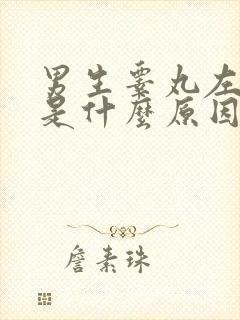 男生睪丸左
是什麼原因
詹素珠